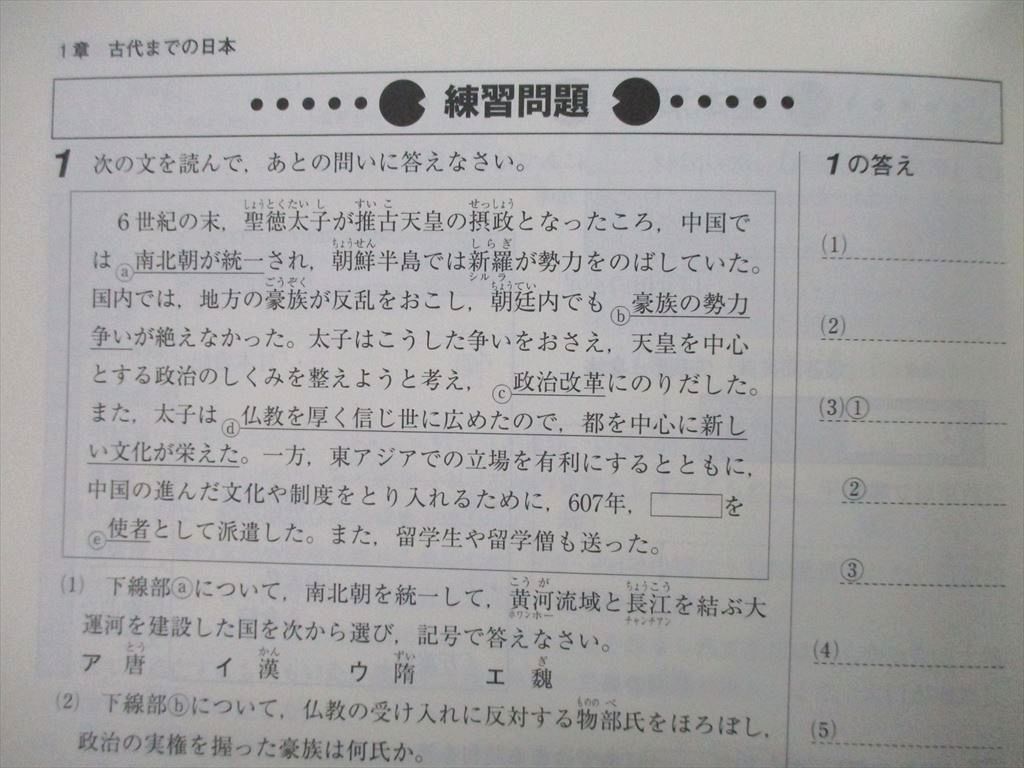 1章 古代までの日本
練習問題
1 次の文を読んで，あとの問いに答えなさい。
6世紀の末，聖徳太子が推古天皇の摂政となったころ，中国で
しょうとくたいし すいこ せっしょう
はⓐ南北朝が統一され，朝鮮半島では新羅が勢力をのばしていた。
ちょうせん しらぎ シルラ
国内では，地方の豪族が反乱をおこし，朝廷内でもⓑ豪族の勢力
ごうぞく ちょうてい
争いが絶えなかった。太子はこうした争いをおさえ，天皇を中心
とする政治のしくみを整えようと考え，ⓒ政治改革にのりだした。
また，太子はⓓ仏教を厚く信じ世に広めたので，都を中心に新し
い文化が栄えた。一方，東アジアでの立場を有利にするとともに，
中国の進んだ文化や制度をとり入れるために，607年，を
ⓔ使者として派遣した。また，留学生や留学僧も送った。
(1) 下線部ⓐについて，南北朝を統一して，黄河流域と長江を結ぶ大
こうが ホワンホー ちょうこう チャンチアン
運河を建設した国を次から選び，記号で答えなさい。
ア 唐 イ 漢 ウ 隋 エ 魏
とう かん ずい ぎ
(2) 下線部ⓑについて，仏教の受け入れに反対する物部氏をほろぼし，
もののべ
政治の実権を握った豪族は何氏か。
1の答え
(1)
(2)
(3)①
②
③
(4)
(5)